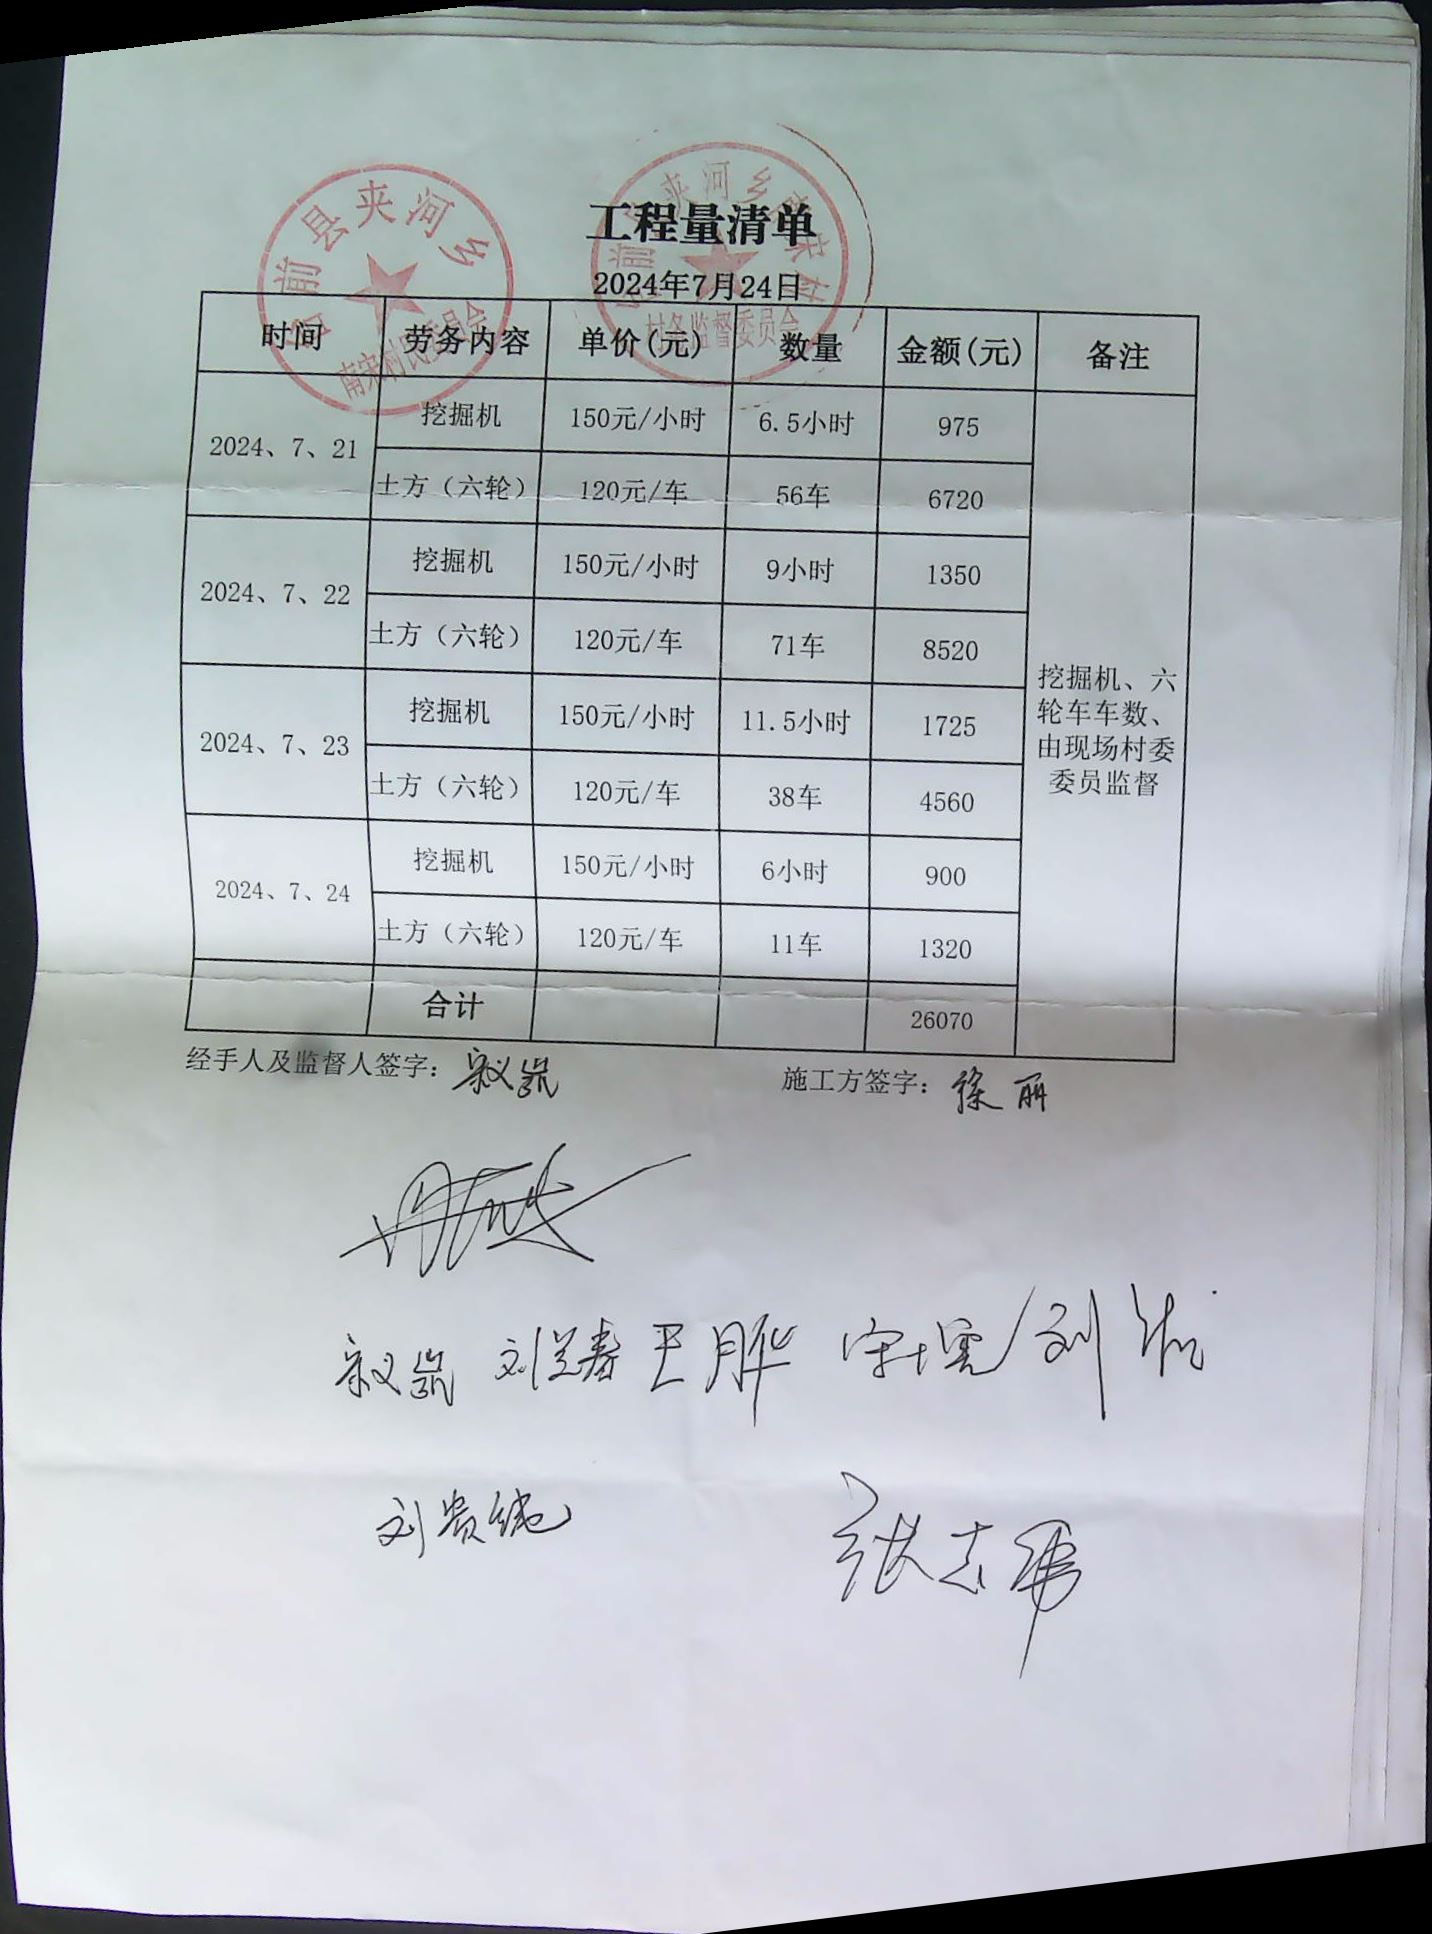 工程量清单
2024年7月24日
前县夹河乡
南宋村民委员会
前 夹河乡南宋村
村务监督委员会
时间 劳务内容 单价(元) 数量 金额(元) 备注
2024、7、21 挖掘机 150元/小时 6.5小时 975
土方（六轮） 120元/车 56车 6720
2024、7、22 挖掘机 150元/小时 9小时 1350
土方（六轮） 120元/车 71车 8520
2024、7、23 挖掘机 150元/小时 11.5小时 1725
土方（六轮） 120元/车 38车 4560
2024、7、24 挖掘机 150元/小时 6小时 900
土方（六轮） 120元/车 11车 1320
合计 26070
挖掘机、六
轮车车数、
由现场村委
委员监督
经手人及监督人签字：
施工方签字：徐丽
刘兰春 王胜 刘
刘贵
张志